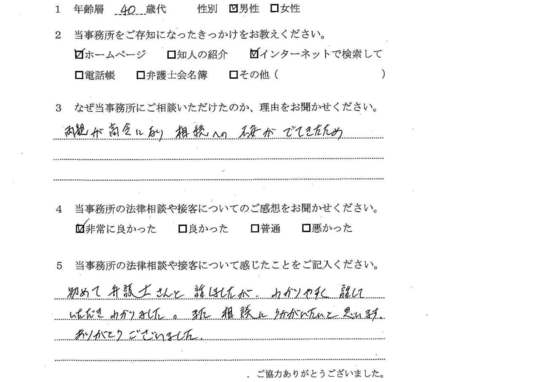 1 年齢層 40 歳代 性別 ☑男性 □女性
2 当事務所をご存知になったきっかけをお教えください。
☑ホームページ □知人の紹介 ☑インターネットで検索して
□電話帳 □弁護士会名簿 □その他（ ）
3 なぜ当事務所にご相談いただけたのか、理由をお聞かせください。
相談への ができたため
4 当事務所の法律相談や接客についてのご感想をお聞かせください。
☑非常に良かった □良かった □普通 □悪かった
5 当事務所の法律相談や接客について感じたことをご記入ください。
初めて弁護士さんと話しましたが、わかりやすく話して
いただきわかりました。また相談にうかがいたいと思います。
ありがとうございました。
．ご協力ありがとうございました。